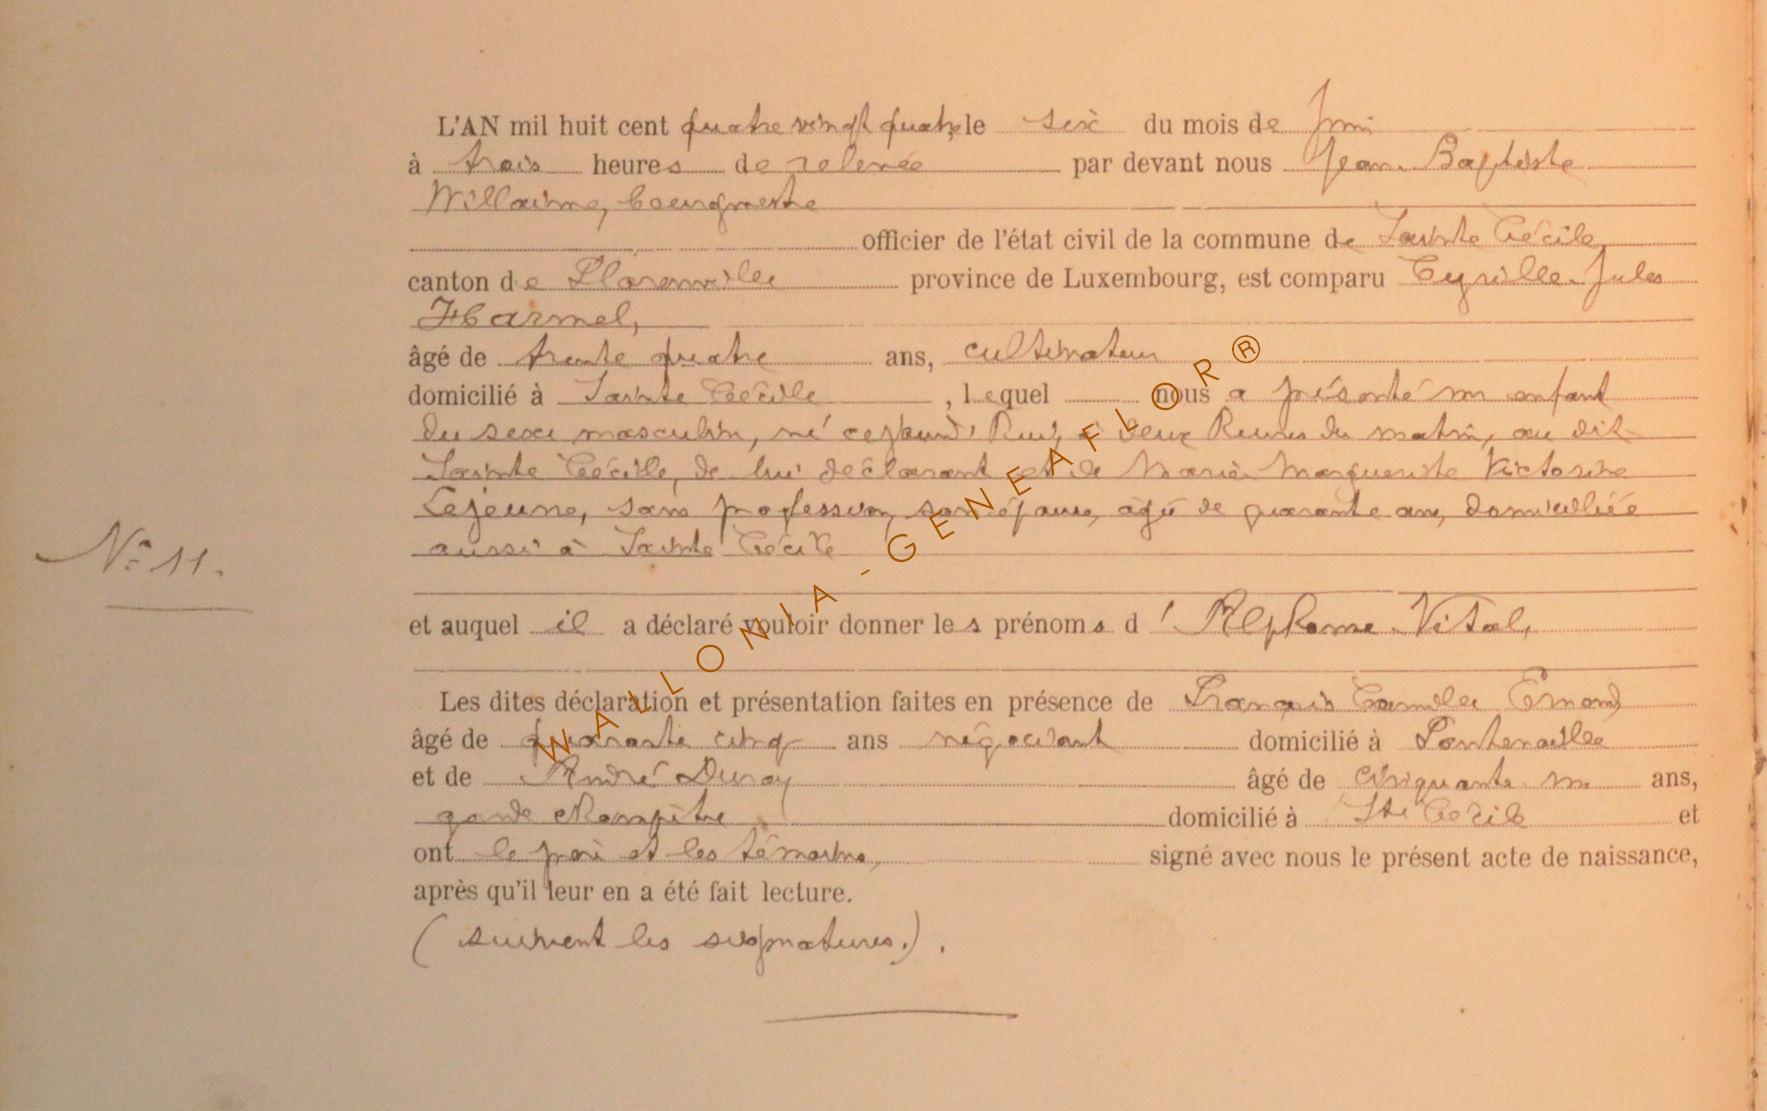 L'AN mil huit cent quatre vingt quatre le six du mois de Juin
à trois heures de relevée par devant nous Jean-Baptiste
Willaime, bourgmestre
officier de l'état civil de la commune de Sainte Cécile,
canton de Florenville province de Luxembourg, est comparu Cyrille-Jules
Harmel,
âgé de trente quatre ans, cultivateur
domicilié à Sainte Cécile, lequel nous a présenté un enfant
du sexe masculin, né cejourd'hui, à deux heures du matin, au dit
Sainte Cécile, de lui déclarant et de Marie Marguerite Victorine
Lejeune, sans profession, son épouse, âgée de quarante ans, domiciliée
aussi à Sainte Cécile
N° 11.
et auquel il a déclaré vouloir donner les prénoms d'Alphonse-Vital,
Les dites déclaration et présentation faites en présence de François Camille
âgé de quarante cinq ans négociant domicilié à Fontenoille
et de André Duroy âgé de cinquante un ans,
garde champêtre domicilié à Ste Cécile et
ont le père et les témoins, signé avec nous le présent acte de naissance,
après qu'il leur en a été fait lecture.
(suivent les signatures.).
WALLONIA-GENEAFLOR®